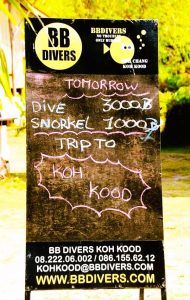 BB
DIVERS
BBDIVERS
NO TROUBLE
ONLY BUBBLE
KOH CHANG
KOH KOOD
TOMORROW
DIVE 3000฿
SNORKEL 1000฿
TRIP TO
KOH
KOOD
BB DIVERS KOH KOOD
08.222.06.002 / 086.155.62.12
KOHKOOD@BBDIVERS.COM
WWW.BBDIVERS.COM